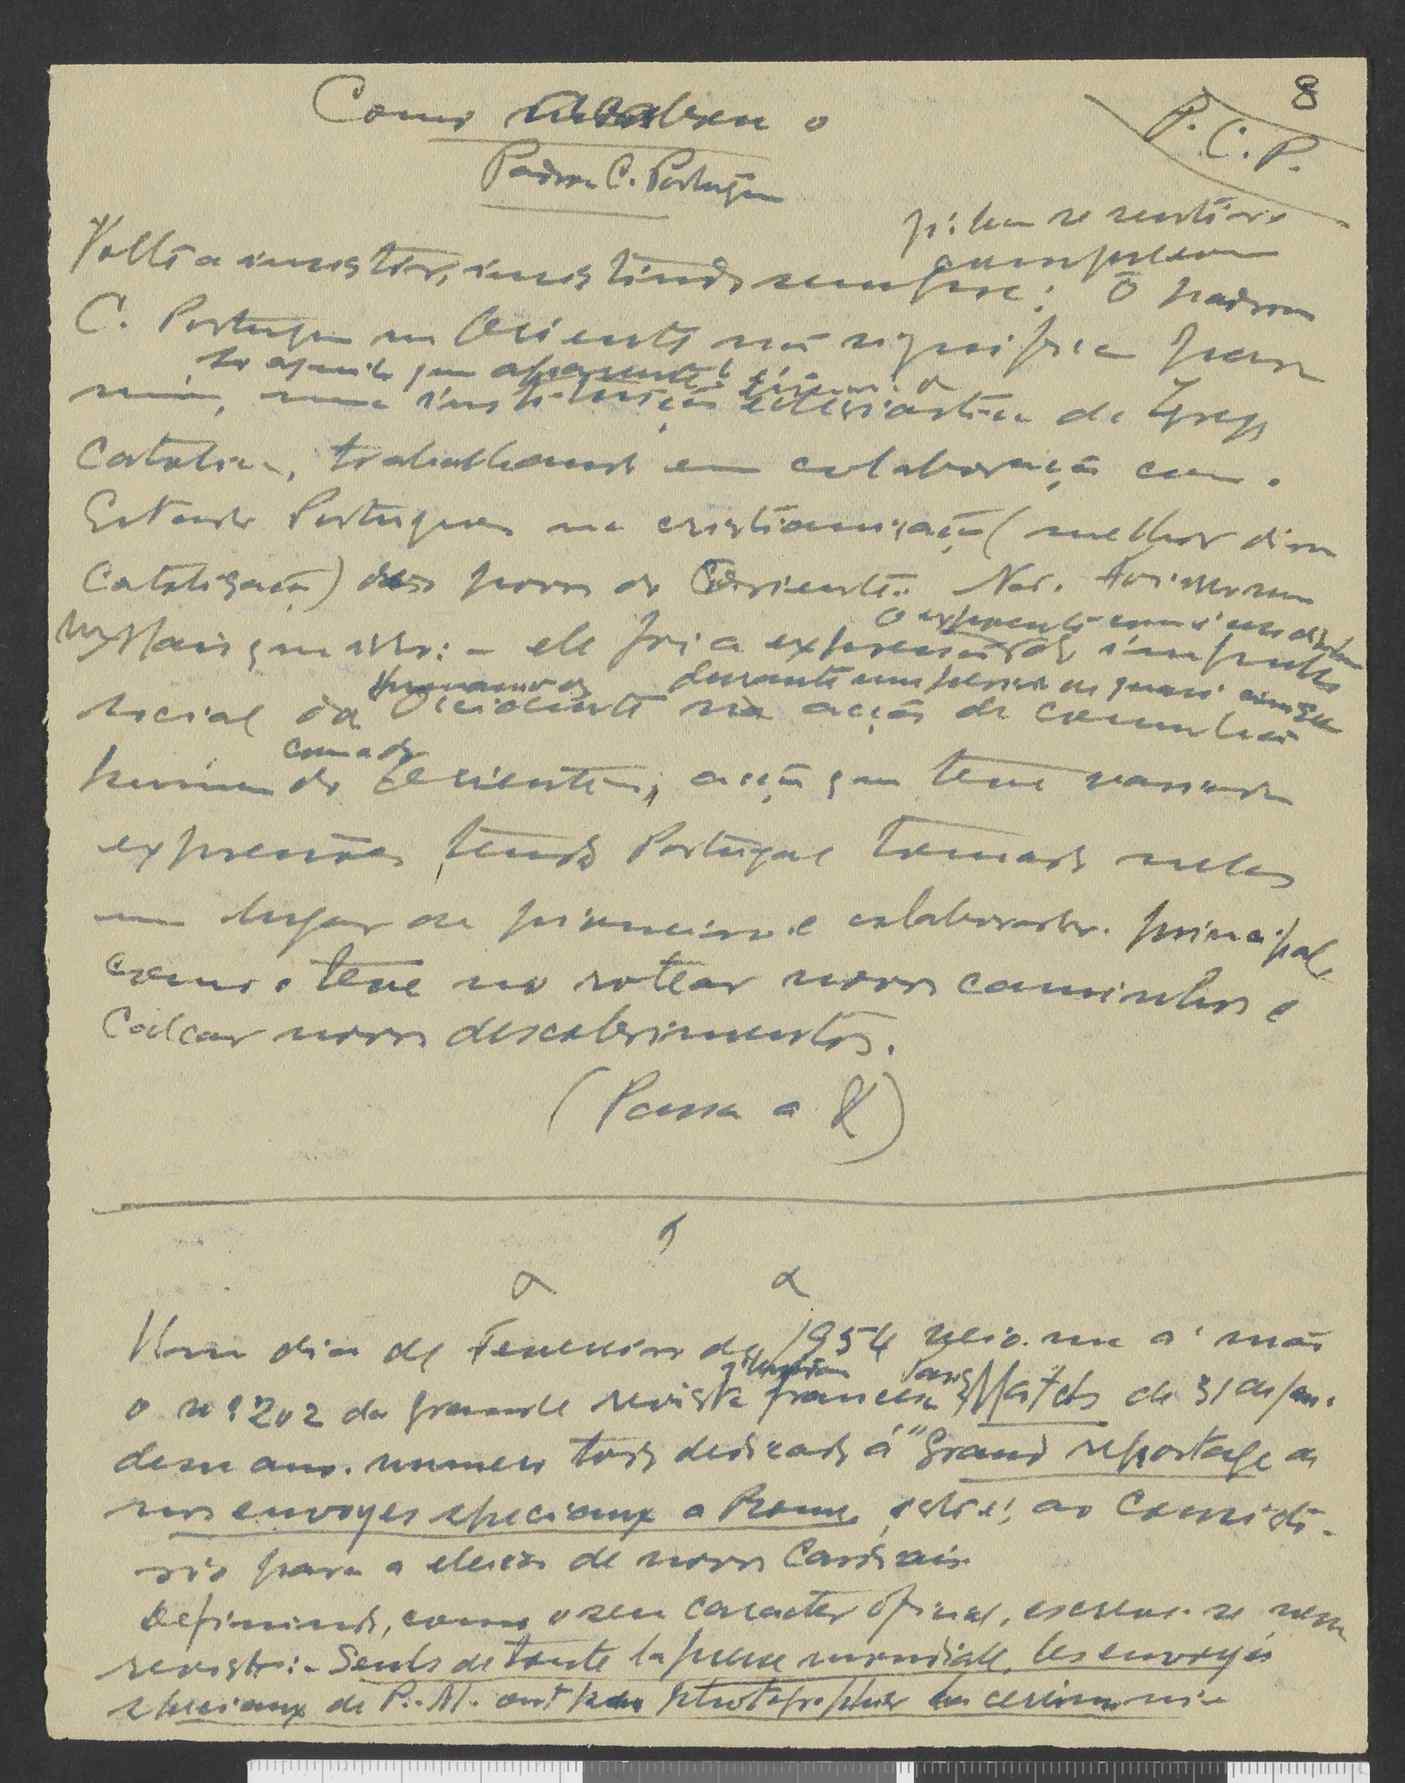 8
P. C. P.
Como o
Padroa C. Portuguez
Volto a insistir, insistindo sempre: O padroa
C. Portuguez no Oriente não significa para
mim, uma instituição eclesiástica da Igreja
Catolica, trabalhando em colaboração com o
Estado Portuguez na cristianização (melhor dira
Catolisação) dos povos do Oriente. Não.
Mais que isso: - ele foi a expressão do impulso
social do Occidente na acção de comunhão
humana com a do Oriente, acção que teve
expressões, tendo Portugal tomado nelas
um lugar de pioneiro e colaborador principal,
como o teve no rotear novos caminhos e
calcar novos descobrimentos.
(Passa a X)
Um dia de Fevereiro de 1954 veio-me á mão
o nº 202 da grande revista francesa Paris Match de 31 de Jan.
desse ano. numero todo dedicado á "Grand reportage de
nos envoyes speciaux a Rome, isto é, ao Consisto-
rio para a eleição de novos Cardeais
Definindo, como o seu caracter oficial, escreve-se nessa
revista: - Seuls de toute la presse mondiale, les envoyés
speciaux de P. M. ont pu photographier la cerimonie